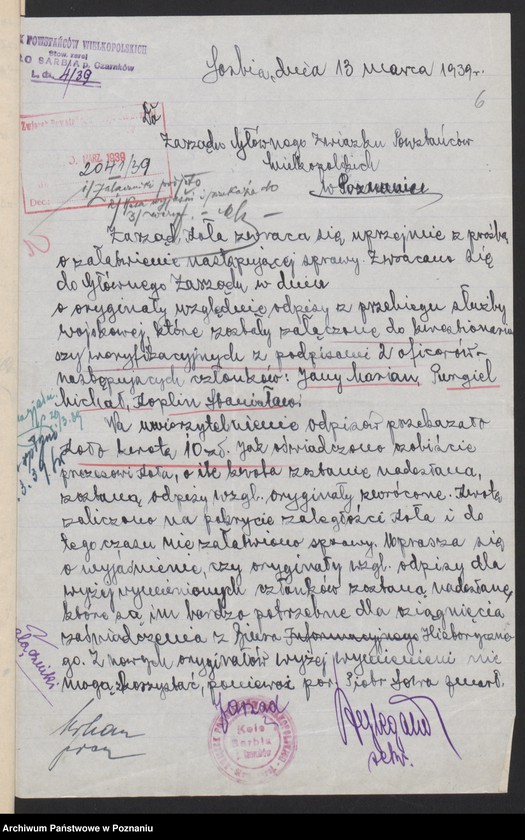 K POWSTAŃCÓW WIELKOPOLSKICH
Stow. zarej
ŁO SARBIA p. Czarnków
L. dz. 4/39
Sarbia, dnia 13 marca 1939 r.
6
Do
Zarządu Głównego Związku Powstańców
Wielkopolskich
w Poznaniu
MRZ. 1939
2041/39
Zarząd Koła zwraca się uprzejmie z prośbą
o załatwienie następującej sprawy. Zwracano się
do Głównego Zarządu w dniu
o oryginały względnie odpisy z przebiegu służby
wojskowej, które zostały załączone do kwestionariu
szy weryfikacyjnych z podpisami 2 oficerów
następujących członków: Jany Marian, Pungiel
Michał, Koplin Stanisław.
Na uwierzytelnienie odpisów przekazało
Koło kwotę 10 zł. Jak oświadczono osobiście
prezesowi Koła, o ile kwota zostanie nadesłana,
zostaną odpisy wzgl. oryginały zwrócone. Kwotę
zaliczono na pokrycie zaległości Koła i do
tego czasu nie załatwiono sprawy. Uprasza się
o wyjaśnienie, czy oryginały wzgl. odpisy dla
wyżej wymienionych członków zostaną nadesłane,
które są im bardzo potrzebne dla ściągnięcia
zaświadczenia z Biura Informacyjnego Historyczne-
go. Z nowych oryginałów wyżej wymienieni nie
mogą skorzystać, ponieważ por. Piotr zmarł.
Zarząd
Koło
Sarbia
p. Czarnków
prezes
sekr.
Archiwum Państwowe w Poznaniu